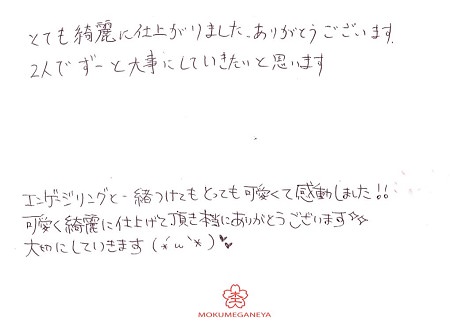 とても綺麗に仕上がりました、ありがとうございます。
2人でずーと大事にしていきたいと思います
エンゲージリングと一緒つけてもとっても可愛くて感動しました!!
可愛く綺麗に仕上げて頂き本当にありがとうございます☆☆
大切にしていきます (*´ω`*)♥♥
MOKUMEGANEYA